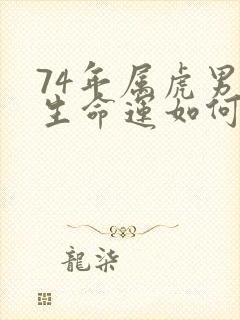 74年属虎男
生命运如何
龍柒